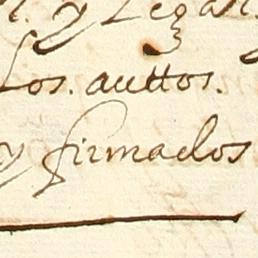 y Legal
Los. auttos.
y firmados